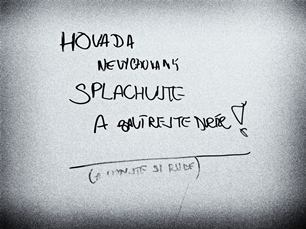 HOVADA
NEVYCHOVANÝ
SPLACHUJTE
A ZAVÍREJTE DVEŘE!
(A UMYJTE SI RUCE)